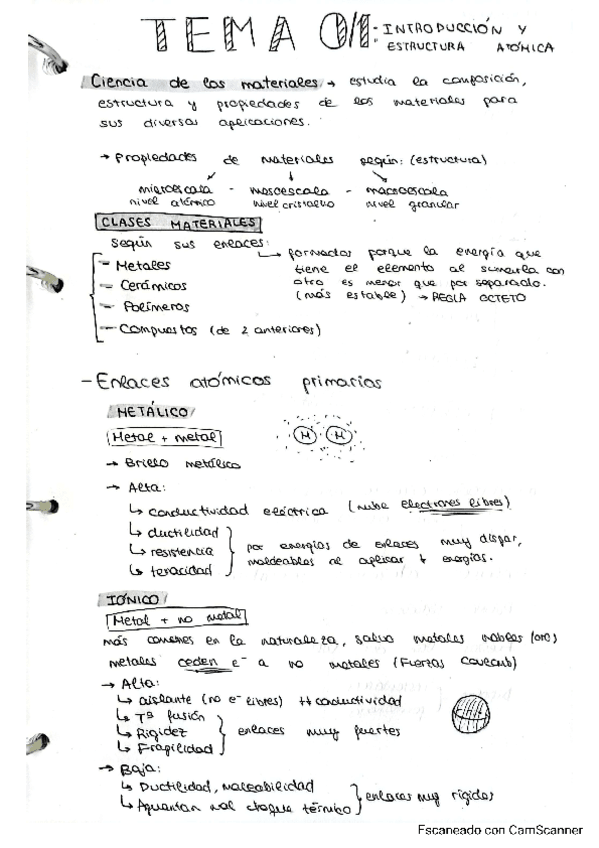 TEMA 01: INTRODUCCIÓN Y
ESTRUCTURA ATÓMICA
Ciencia de los materiales → estudia la composición,
estructura y propiedades de los materiales para
sus diversas aplicaciones.
→ Propiedades de materiales según: (estructura)
microescala - mesoescala - macroescala
nivel atómico nivel cristalino nivel granular
CLASES MATERIALES
según sus enlaces:
formados porque la energía que
tiene el elemento al sumarla con
otro es menor que por separado.
(más estable) → REGLA OCTETO
- Metales
- Cerámicos
- Polímeros
- Compuestos (de 2 anteriores)
- Enlaces atómicos primarios
METÁLICO
Metal + metal
M M
→ Brillo metálico
→ Alta:
↳ conductividad eléctrica (nube electrones libres)
↳ ductilidad
↳ resistencia
↳ tenacidad
por energías de enlaces muy dispar,
moldeables al aplicar energías.
IÓNICO
Metal + no metal
más comunes en la naturaleza, salvo metales nobles (oro)
metales ceden e- a no metales (Fuerzas Coulomb)
→ Alta:
↳ aislante (no e- libres) conductividad
↳ Tª fusión
↳ Rigidez
↳ Fragilidad
enlaces muy fuertes
→ Baja:
↳ Ductilidad, maleabilidad
↳ Aguantan mal choque térmico
enlaces muy rígidos
Escaneado con CamScanner